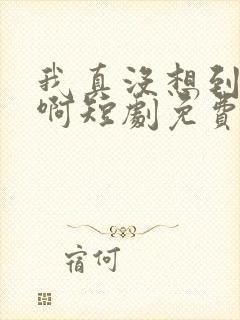 我真没想到
啊短劇免費
宿何